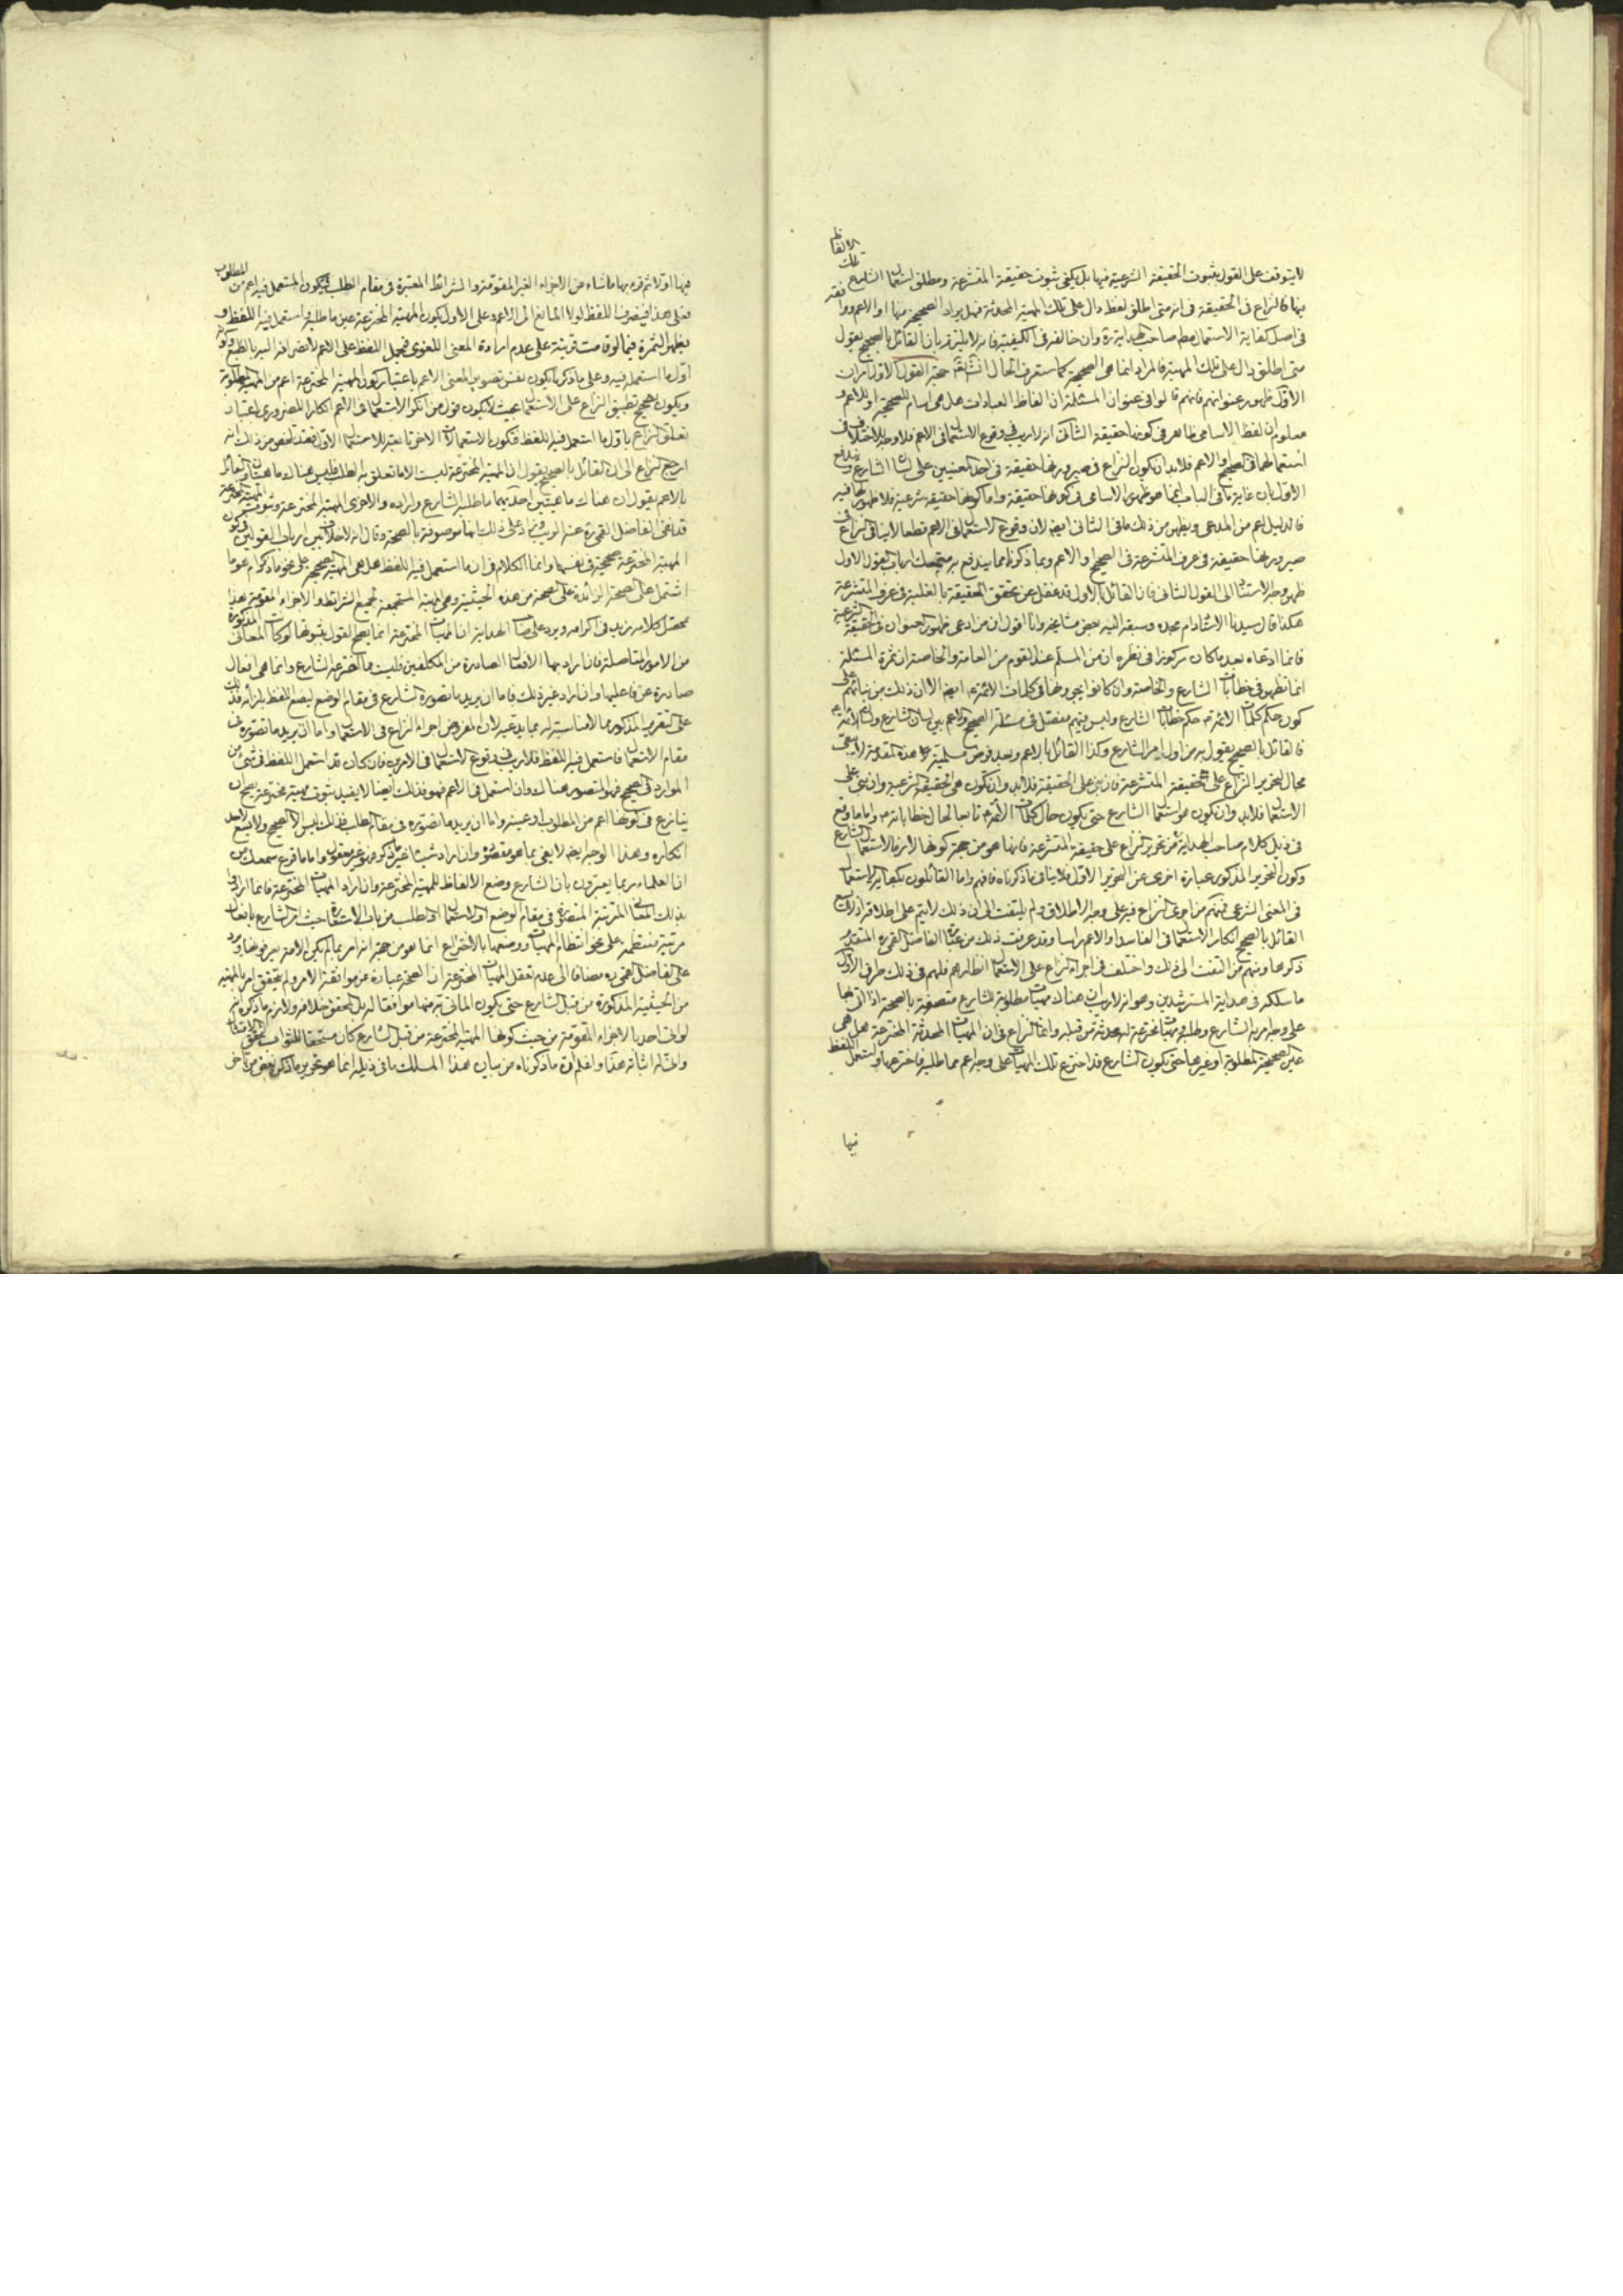 الالفاظ
تلك
لا يتوقف على القول بثبوت الحقيقة الشرعية فيها بل يكفى ثبوت حقيقة المتشرعة ومطلق استعمال الشارع
بها فالنزاع فى الحقيقة فى انه متى اطلق لفظ دال على تلك المهية المحدثة فهل يراد الصحيحة منها او الاعم ووافقه
فى اصل كفاية الاستعمال صاحب الهداية ره وان خالفه فى الكيفية فانه لا يلتزم بان القائل بالصحيح يقول
متى اطلق دال على تلك المهية فالمراد انما هى الصحيحة كما ستعرف الحال انشاءالله حجة القول الاول امران
الاول ظهور عنوانهم فانهم قالوا فى عنوان المسئلة ان الفاظ العبادات هل هى اسام للصحيحة او للاعم و
معلوم ان لفظ الاسامى ظاهر فى كونها حقيقة الثانى انه لا ريب فى وقوع الاستعمال فى الاعم فلا وجه للاختلاف فى
استعمالها فى الصحيح او الاعم فلابد ان يكون النزاع فى صيرورتها حقيقة فى احد المعنيين على لسان الشارع ويندفع
الاول بان غاية ما فى الباب انما هو ظهور الاسامى فى كونها حقيقة واما كونها حقيقة شرعية فلا ظهور لها فيه
فالدليل اعم من المدعى ويظهر من ذلك ما فى الثانى ايضا لان وقوع الاستعمال فى الاعم قطعا لا ينافى النزاع فى
صيرورتها حقيقة فى عرف المتشرعة فى الصحيح او الاعم وبما ذكرنا مما يندفع به متمسك ارباب القول الاول
ظهر وجه الاستناد الى القول الثانى فان القائل بالاول قد غفل عن تحقق الحقيقة بالغلبة فى عرف المتشرعة
هكذا قال سيدنا الاستاد دام مجده وسبقه اليه بعض مشايخه وانا اقول ان من ادعى ظهور العنوان فى الحقيقة الشرعية
فانما ادعاه بعد ما كان مركوزا فى نظره ان من المسلم عند القوم من العامة والخاصة ان ثمرة المسئلة
انما تظهر فى خطابات الشارع والخاصة وان كانوا يجرونها فى كلمات الائمة ع ايضا الا ان ذلك من بنائهم على
كون حكم كلمات الائمة ع حكم خطابات الشارع وليس فيهم مفصل فى مسئلة الصحيح والاعم بين لسان الشارع ولسان الائمة ع
فالقائل بالصحيح يقول به من اول امر الشارع وكذا القائل بالاعم وبعد فرض مسلمية هذه المقدمة لا يبقى
مجال لتحرير النزاع على الحقيقة المتشرعة فان بنى على الحقيقة فلابد وان تكون هى الحقيقة الشرعية وان بنى على
الاستعمال فلابد وان يكون هو استعمال الشارع حتى يكون حال كلمات الائمة ع تابعا لحال خطاباته ص واما ما وقع
فى ذيل كلام صاحب الهداية ره من تحرير النزاع على حقيقة المتشرعة فانما هو من جهة كونها لازم لاستعمال الشارع
وكون التحرير المذكور عبارة اخرى عن التحرير الاول فلا ينافى ما ذكرناه فافهم واما القائلون بكفاية الاستعمال
فى المعنى الشرعى فمنهم من اجرى النزاع فيه على وجه الاطلاق ولم يلتفت الى ان ذلك لا يتم على اطلاقه اذ لا يسع
القائل بالصحيح انكار الاستعمال فى الفاسد او الاعم راسا وقد عرفت ذلك من عبارة الفاضل القمى ره المتقدم
ذكرها ومنهم من التفت الى ذلك واختلف فى اجراء النزاع على الاستعمال انظارهم فلهم فى ذلك طرق الاول
ما سلكه فى هداية المسترشدين وهو انه لا ريب ان هناك مهيات مطلوبة للشارع متصفة بالصحة اذا اتى بها
على وجه امر به الشارع وطلبه ومهيات مخترعة له محدثة من قبله وانما النزاع فى ان المهيات المحدثة المخترعة هل هى
عين الصحيحة المطلوبة او غيرها حتى يكون الشارع قد اخترع تلك المهيات على وجه اعم مما طلبه فاخترعها واستعمل اللفظ
فيها
فيها اولا ثم قرنه بها ما شاء من الاجزاء الغير المقومة والشرائط المعتبرة فى مقام الطلب فيكون المستعمل فيه اعم من المطلوب
فعلى هذا فينصرف اللفظ لولا المانع الى الاعم وعلى الاول يكون المهية المخترعة عين ما طلبه واستعمل فيه اللفظ و
يظهر الثمرة فيما لو قامت قرينة على عدم ارادة المعنى اللغوى فيحمل اللفظ على الاعم لانصرافه اليه بالطبع وكونه
اول ما استعمل فيه وعلى ما ذكر يكون نفس تصوير المعنى الاعم باعتبار كون المهية المخترعة اعم من المهية المطلوبة
ويكون تطبيق النزاع على الاستعمال بحيث لا يكون قول من انكر الاستعمال فى الاعم انكارا للضرورى باعتبار
تعلق النزاع باول ما استعمل فيه اللفظ فتكون الاستعمالات الاخر تابعة للاستعمال الاول فقد تلخص من ذلك انه
ارجع النزاع الى ان القائل بالصحيح يقول ان المهية المخترعة ليست الا ما تعلق به الطلب فليس هناك ماهيتان والقائل
بالاعم يقول ان هناك ماهيتين احديهما ما طلبه الشارع واراده والاخرى المهية المخترعة
قد نفى الفاضل القمى ره عنه الريب وزاد على ذلك انها موصوفة بالصحة وقال انه لا خلاف بين ارباب القولين فى كون
المهية المخترعة صحيحة فى نفسها وانما الكلام فى ان ما استعمل فيه اللفظ هل هى المهية الصحيحة على نحو ما ذكر ام هو ما
اشتمل على الصحة الزائدة على الصحة من هذه الحيثية وهى المهية المستجمعة لجميع الشرائط والاجزاء المقومة هذا
محصل كلامه زيد فى اكرامه ويرد على صاحب الهداية ان المهيات المخترعة انما يصح القول بثبوتها لو كانت المعانى المذكورة
من الامور المتاصلة فان اراد بها الافعال الصادرة من المكلفين فليست مما اخترعه الشارع وانما هى افعال
صادرة عن فاعليها وان اراد غير ذلك فاما ان يريد ما تصوره الشارع فى مقام الوضع ليضع اللفظ بازائه فذلك
على التقرير المذكور مما لا مناسبة له بما يدعيه لان المفروض اجراء النزاع فى الاستعمال واما ان يريد ما تصوره فى
مقام الاستعمال فاستعمل فيه اللفظ فلا ريب فى وقوع الاستعمال فى الامرين فان كان قد استعمل اللفظ فى شىء من
الموارد فى الصحيح فهو المتصور هناك وان استعمل فى الاعم فهو فذلك ايضا لا يفيد ثبوت مهية مخترعة يصح ان
ينازع فى كونها اعم من المطلوب او عينه واما ان يريد ما تصوره فى مقام الطلب فذلك ليس الا الصحيح ولا يسع لاحد
انكاره وهذا الوجه ايضا لا يفى بما هو مقصوده وان اراد شيئا غير ما ذكر فهو غير معقول واما ما قرع سمعك من
ان العلماء ربما يعبرون بان الشارع وضع الالفاظ للمهية المخترعة وان اراد المهيات المخترعة فانما ارادوا
بذلك المعانى المترتبة المتصورة فى مقام الوضع او الاستعمال او الطلب من باب الاستعارة حيث امر الشارع بافعال
مرتبة منتظمة على نحو انتظام المهيات ووصفها بالاختراع انما هو من جهة انه امر بما لم يكن الامة يعرفونها ويرد
على الفاضل القمى ره مضافا الى عدم تعقل المهيات المخترعة ان الصحة عبارة عن موافقة الامر ولم يتحقق امر بالمهية
من الحيثية المذكورة من قبل الشارع حتى يكون الماتى به منها موافقا له بل المحقق خلافه ولازم ما ذكره انه
لو اتى احد بالاجزاء المقومة من حيث كونها المهية المخترعة من قبل الشارع كان مستحقا للثواب
وانى له اثباته هذا واعلم ان ما ذكرناه من بيان هذا المسلك ما فى ذيله انما هو تحرير ما ذكره بعض من تاخر